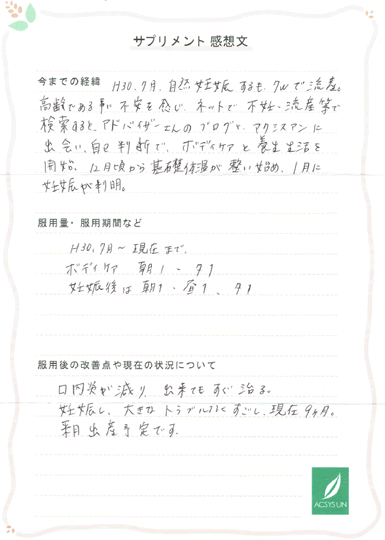 サプリメント 感想文
今までの経緯 H30.7月、自然妊娠するも、7wで流産。
高齢である事に不安を感じ、ネットで不妊・流産等で
検索すると、アドバイザーさんのブログと、アクシスアンに
出会い、自己判断で、ボディケアと養生生活を
開始。12月頃から基礎体温が整い始め、1月に
妊娠が判明。
服用量・服用期間など
H30.7月～現在まで。
ボディケア 朝1・夕1
妊娠後は朝1・昼1、夕1
服用後の改善点や現在の状況について
口内炎が減り、出来てもすぐ治る。
妊娠し、大きなトラブルなくすごし、現在9ヶ月。
来月出産予定です。
ACSYSUN